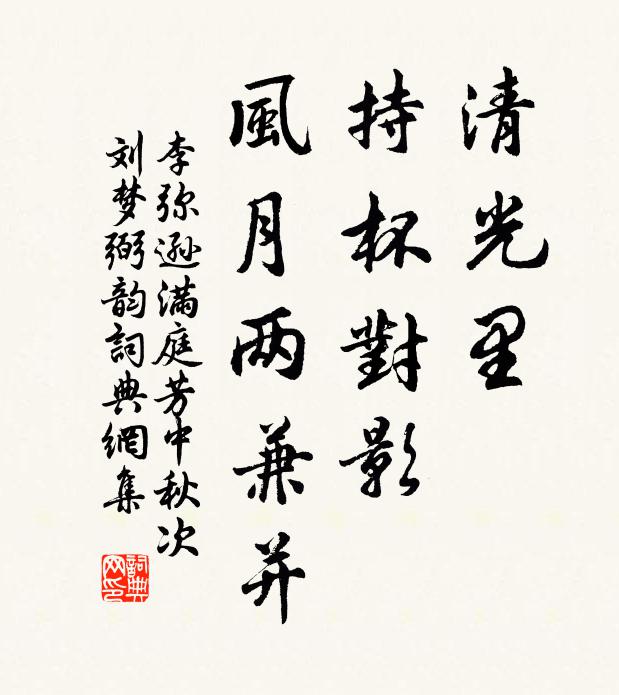 清光里
持杯對影
風月两兼并
李弥遜满庭芳中秋次
刘梦弼韵詞典網集
詞典网印